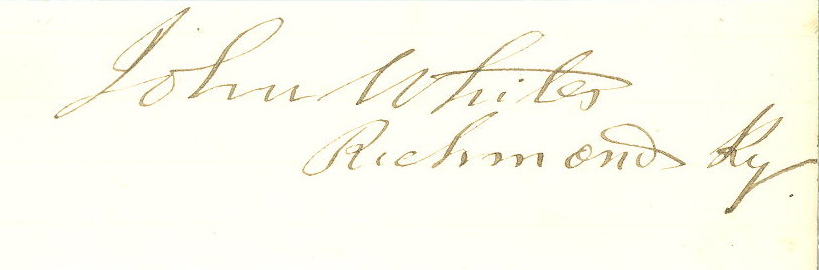 John White
Richmond Ky.